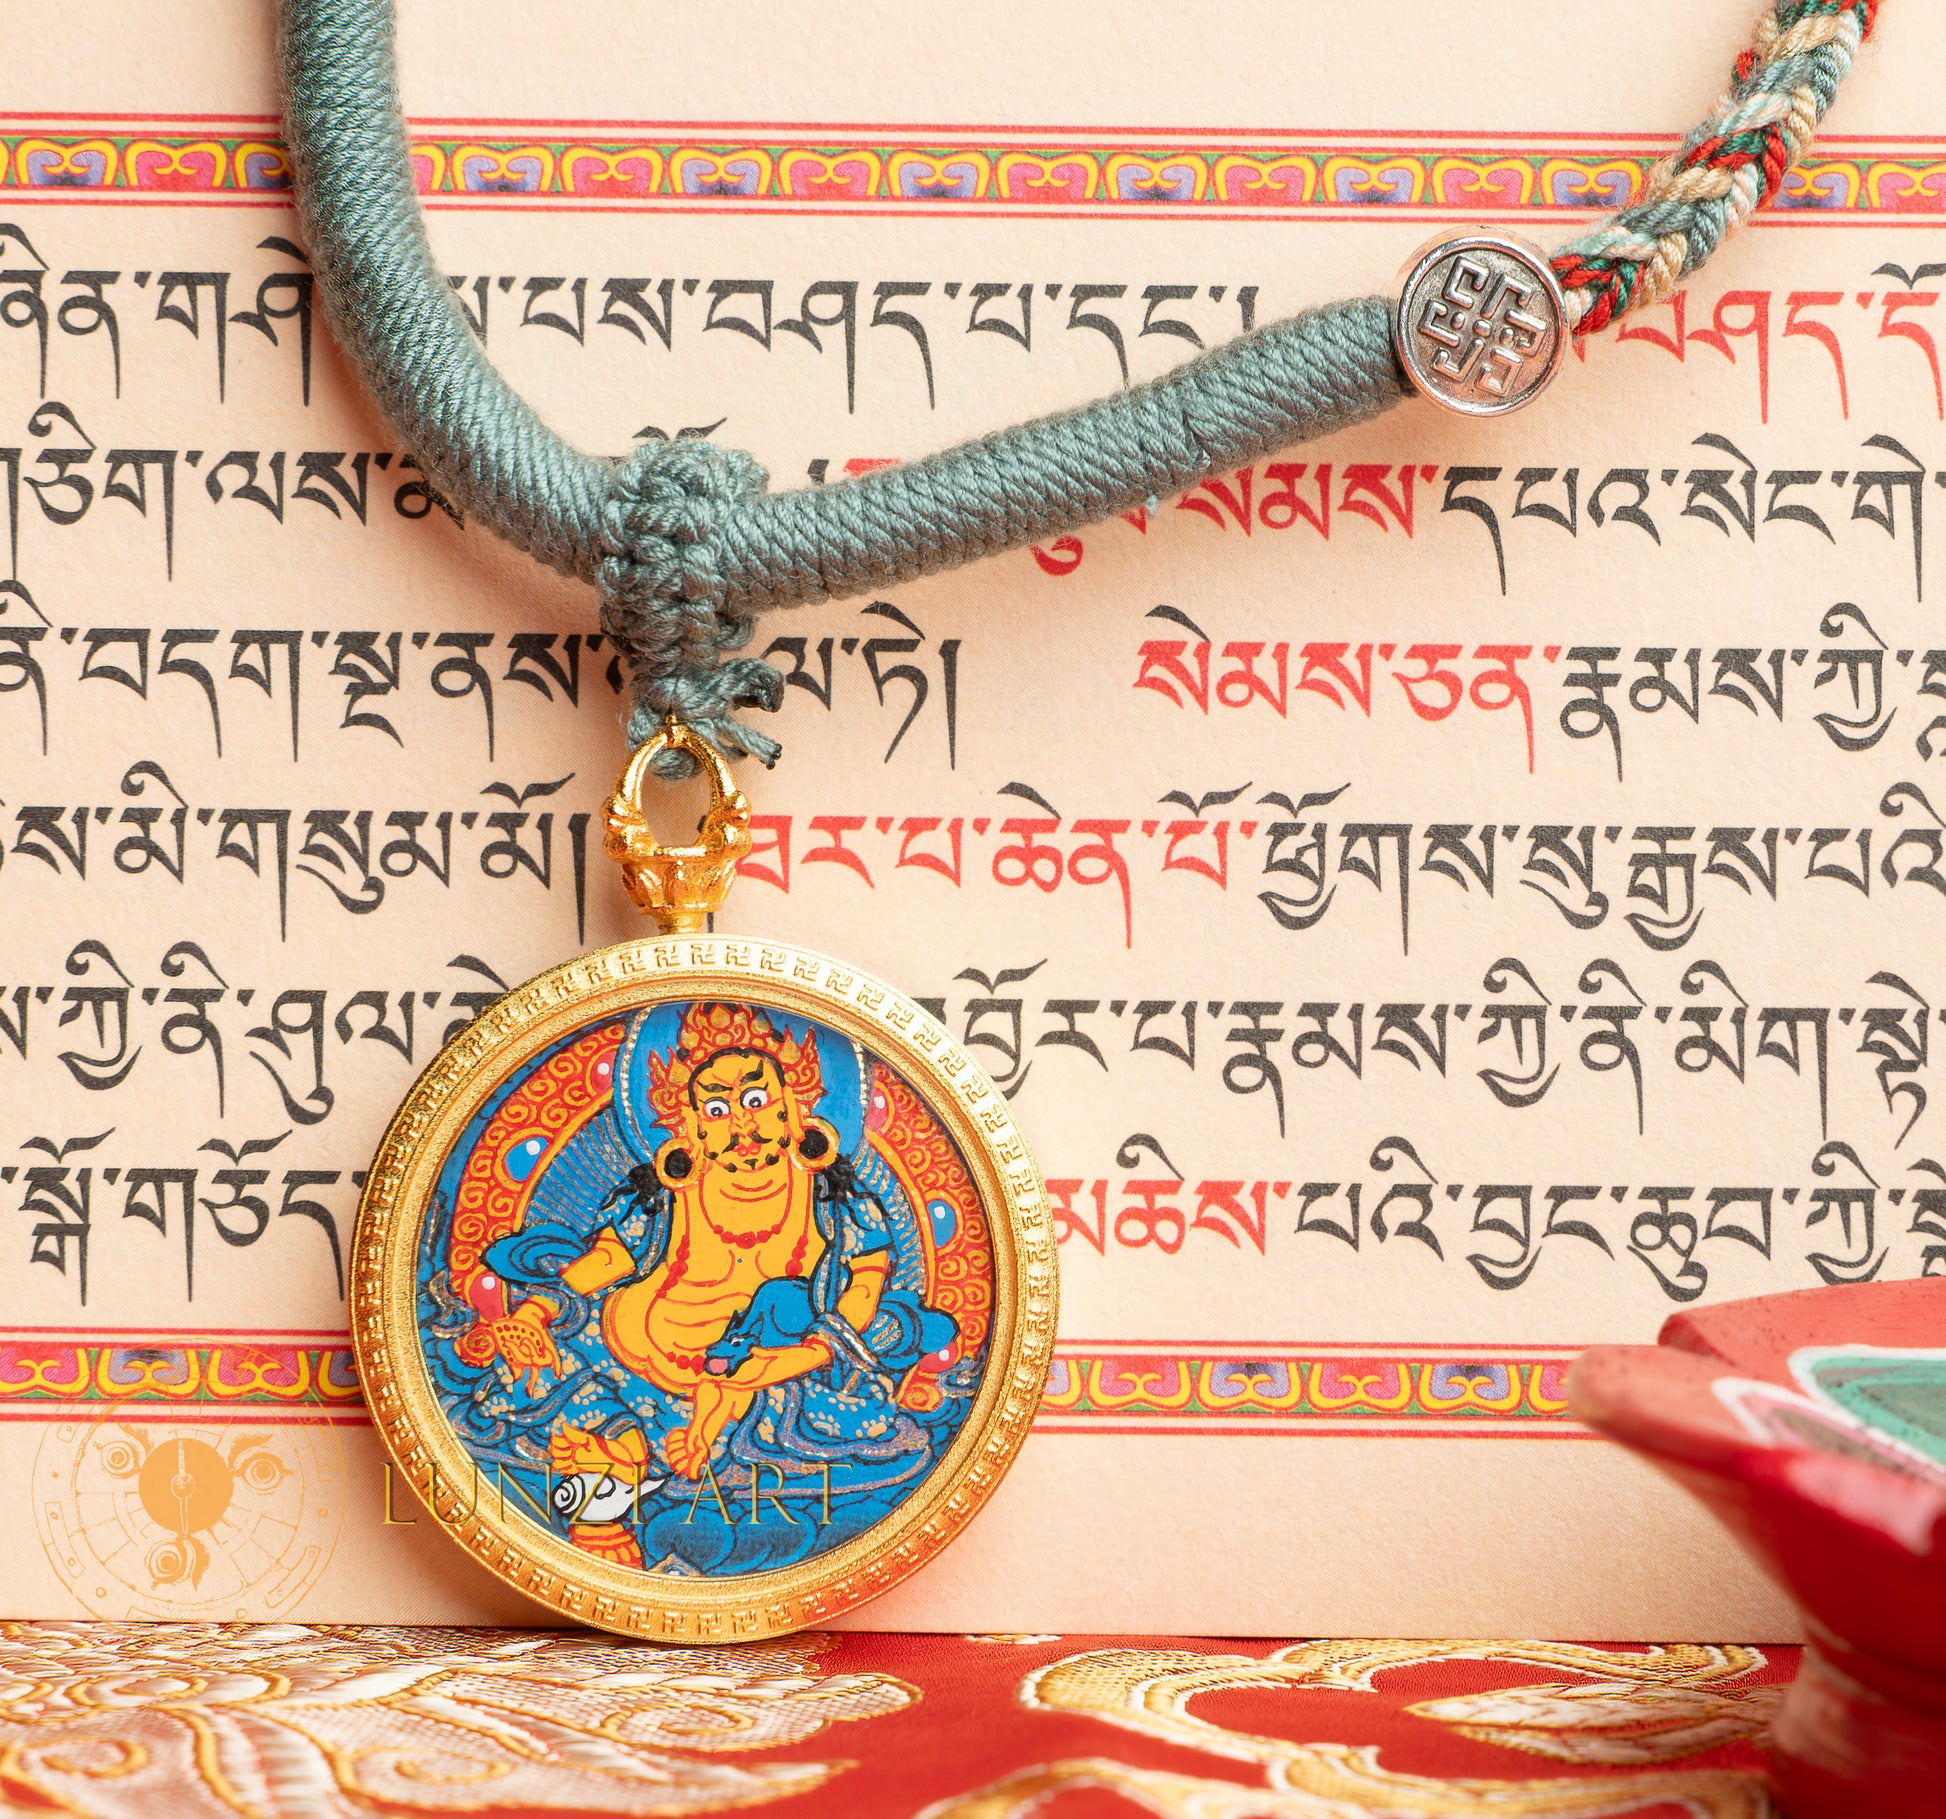 པས་བཤད་པ་དང་།
བཤད་དོ
ཅིག་ལས་
སེམས་དཔའ་སེང་གེ
ནི་བདག་སྔ་ནས་
ལ་ཏེ།
སེམས་ཅན་རྣམས་ཀྱི་
ས་མི་གསུམ་མོ།
ཐར་པ་ཆེན་པོ་ཕྱོགས་སུ་རྒྱས་པའི
ཀྱི་ནི་ཤུལ་
བྱོར་པ་རྣམས་ཀྱི་ནི་མིག་
སྒོ་གཅོད་
མཆིས་པའི་བྱང་ཆུབ་ཀྱི་
LUNZI ART